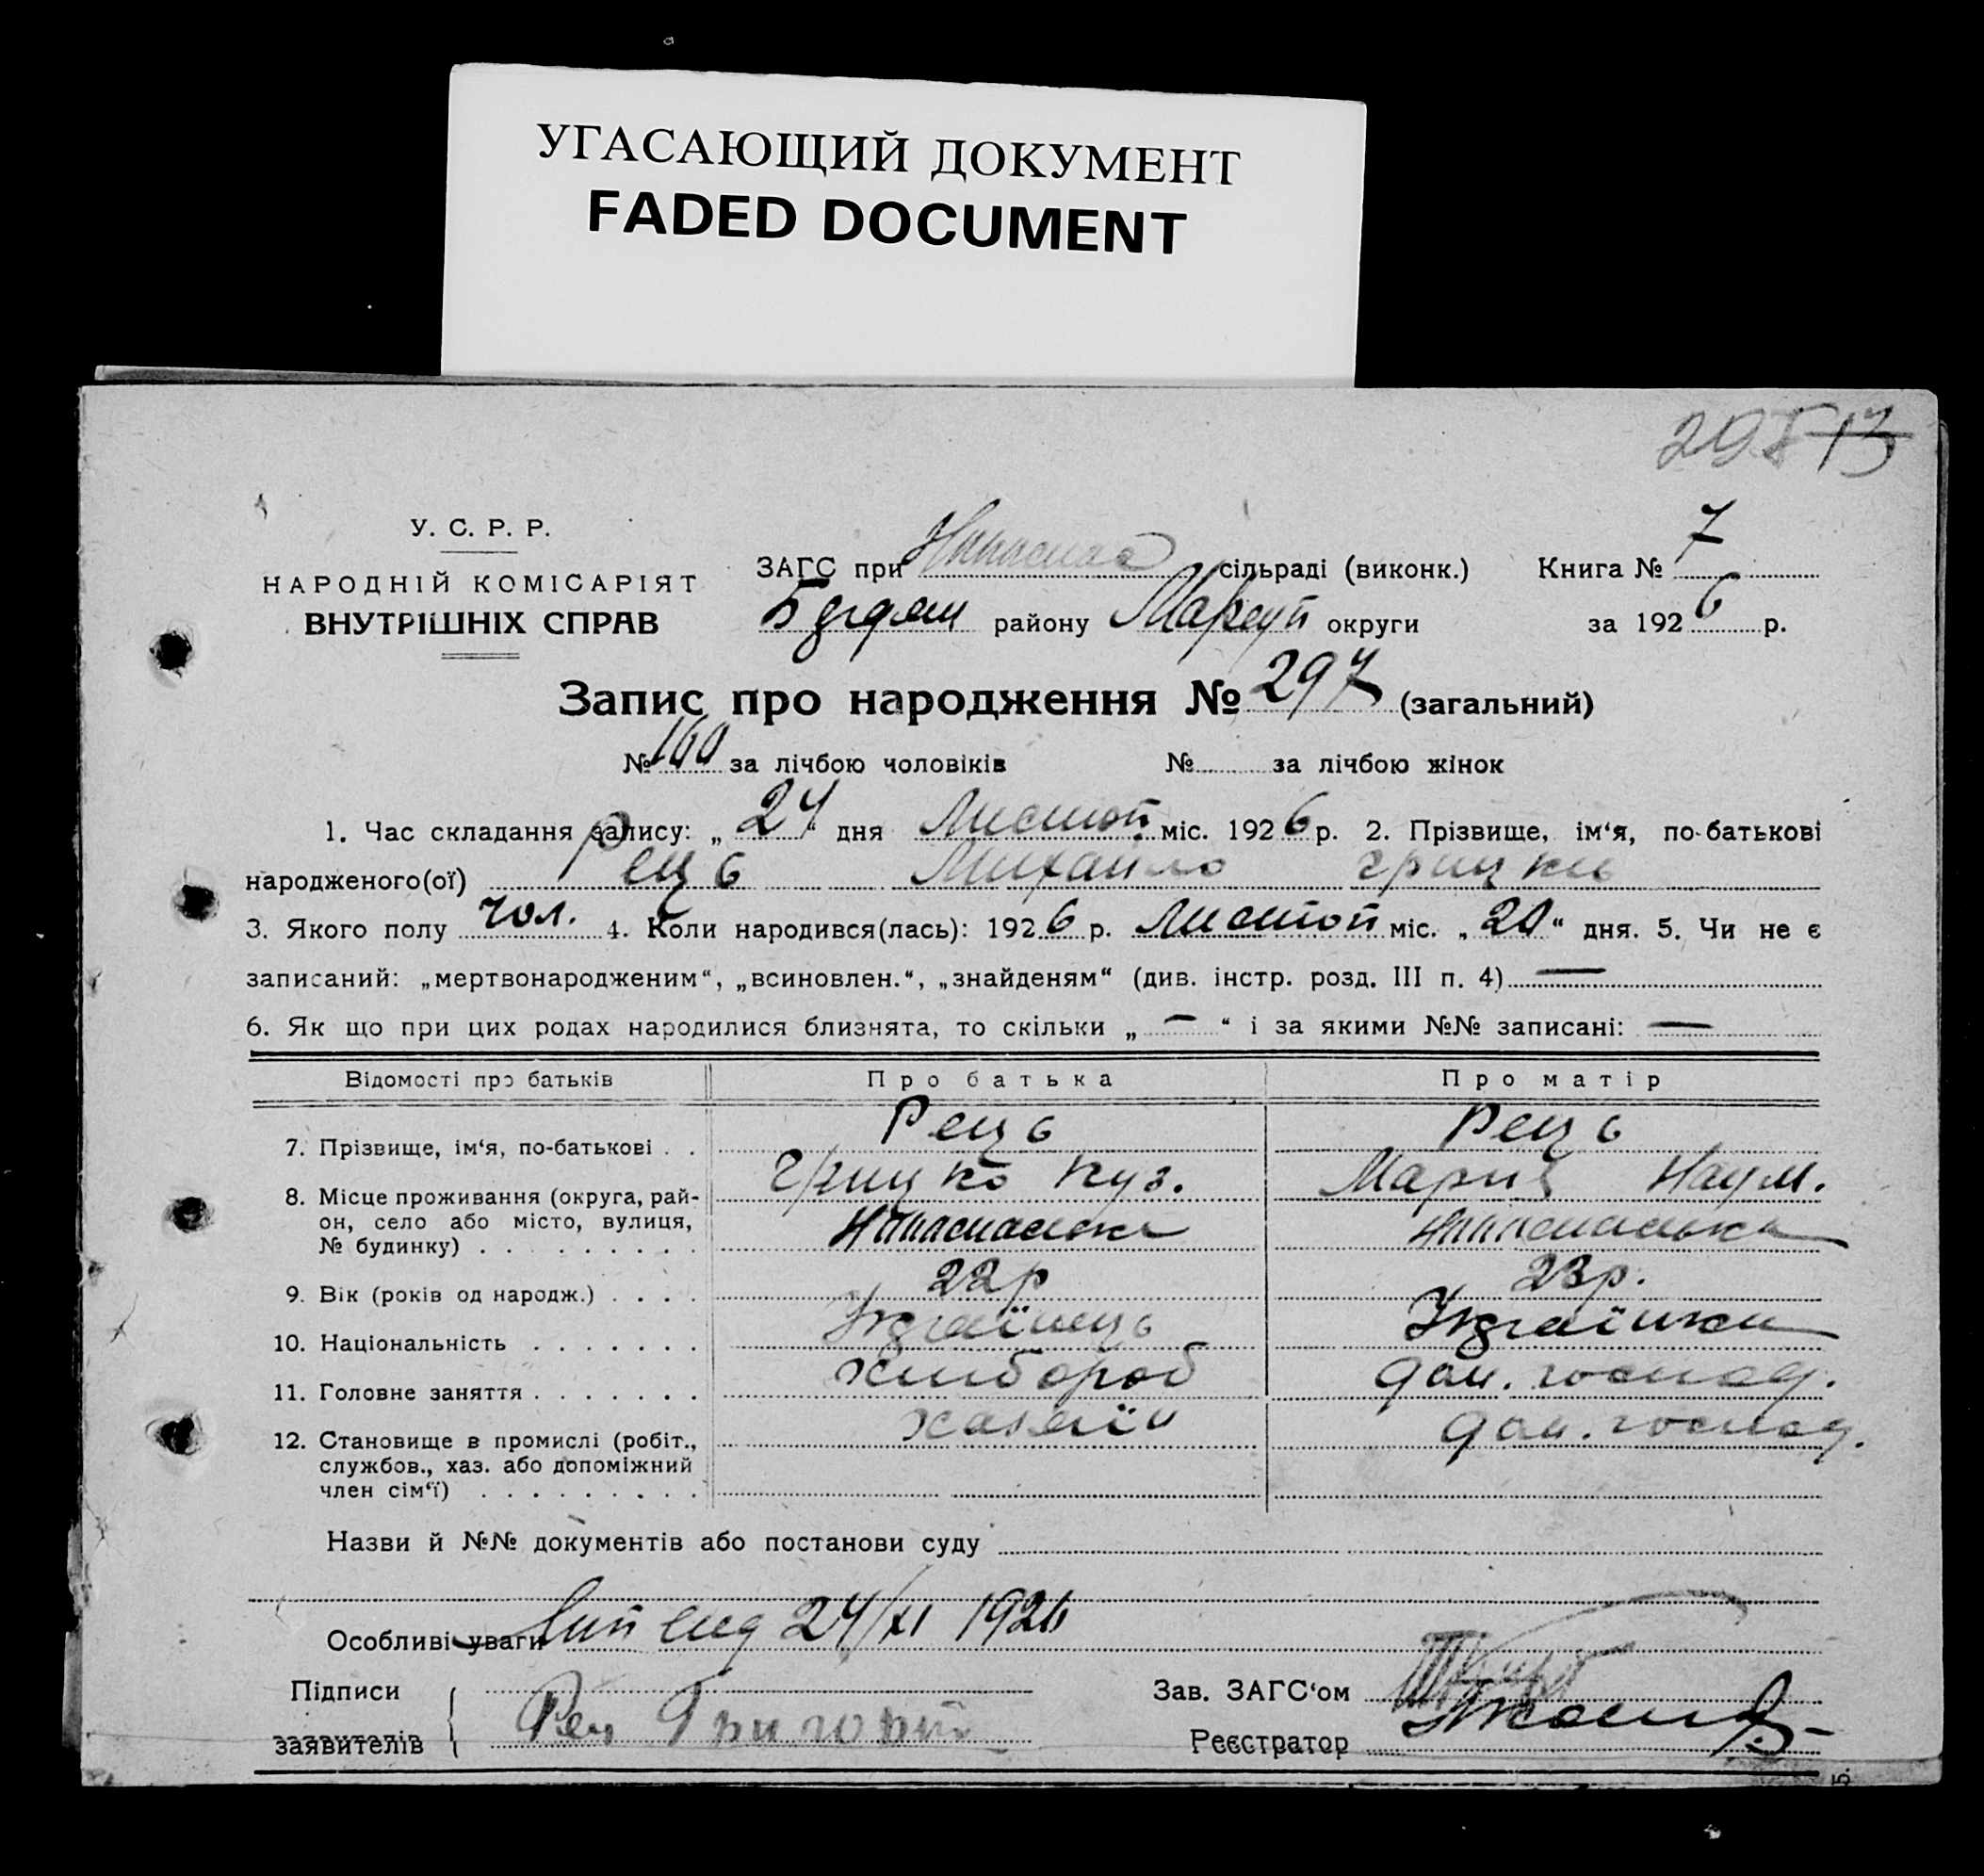 УГАСАЮЩИЙ ДОКУМЕНТ
FADED DOCUMENT
У. С. Р. Р.
НАРОДНІЙ КОМІСАРІЯТ
ВНУТРІШНІХ СПРАВ
ЗАГС при сільраді (виконк.) Книга № 7
району округи за 1926 р.
Запис про народження № 297 (загальний)
№ 160 за лічбою чоловіків № за лічбою жінок
1. Час складання запису: „ 24 “ дня Листоп. міс. 1926 р. 2. Прізвище, ім‘я, по-батькові
народженого(ої) Рець Михайло Грицьк.
3. Якого полу чол. 4. Коли народився(лась): 1926 р. Листоп міс. „ 20 “ дня. 5. Чи не є
записаний: „мертвонародженим“, „всиновлен.“, „знайденям“ (див. інстр. розд. III п. 4) —
6. Як що при цих родах народилися близнята, то скільки „ — “ і за якими №№ записані: —
Відомості про батьків Про батька Про матір
7. Прізвище, ім‘я, по-батькові . . Рець Рець
Грицько Куз. Мария Наум.
8. Місце проживання (округа, рай-
он, село або місто, вулиця,
№ будинку)
9. Вік (років од народж.) 22р 23р.
10. Національність Українець Українка
11. Головне заняття хлибороб дом. господ.
12. Становище в промислі (робіт., хазяїн дом. господ.
службов., хаз. або допоміжний
член сім‘ї)
Назви й №№ документів або постанови суду
Особливі уваги 24/XI 1926
Підписи
заявителів Рец Григорий
Зав. ЗАГС‘ом
Реєстратор